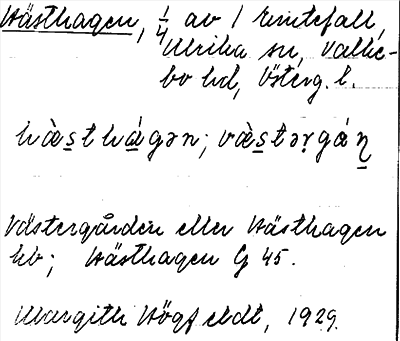 Hästhagen, 1/4 av 1 Rintefall,
Ulrika sn, Valke-
bo hd, Österg. l.
hàsthágən; vàstəṛgáṇ
Västergården eller Hästhagen
hb; Hästhagen G 45.
Margith Högfeldt, 1929.